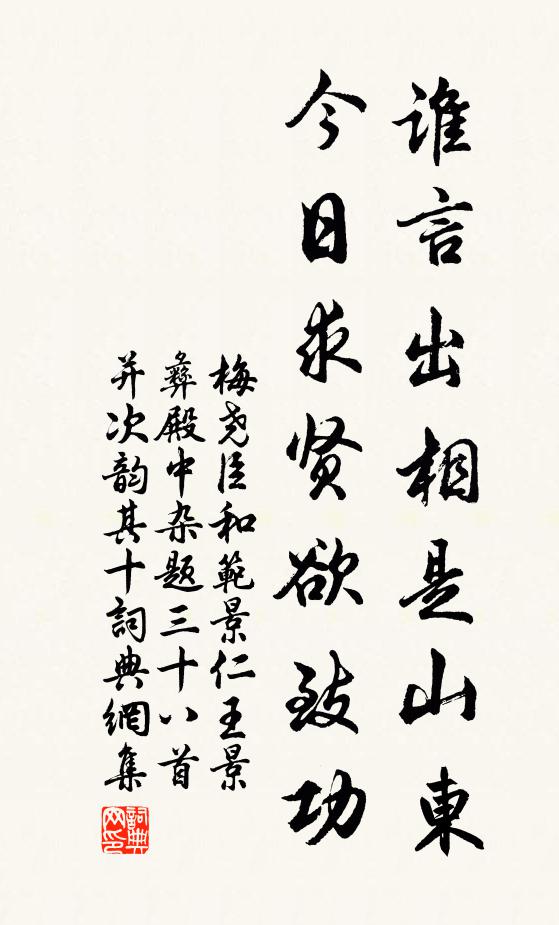 谁言出相是山東
今日求贤欲致功
梅尧臣和範景仁王景
彝殿中杂题三十八首
并次韵其十詞典網集
詞典
网印